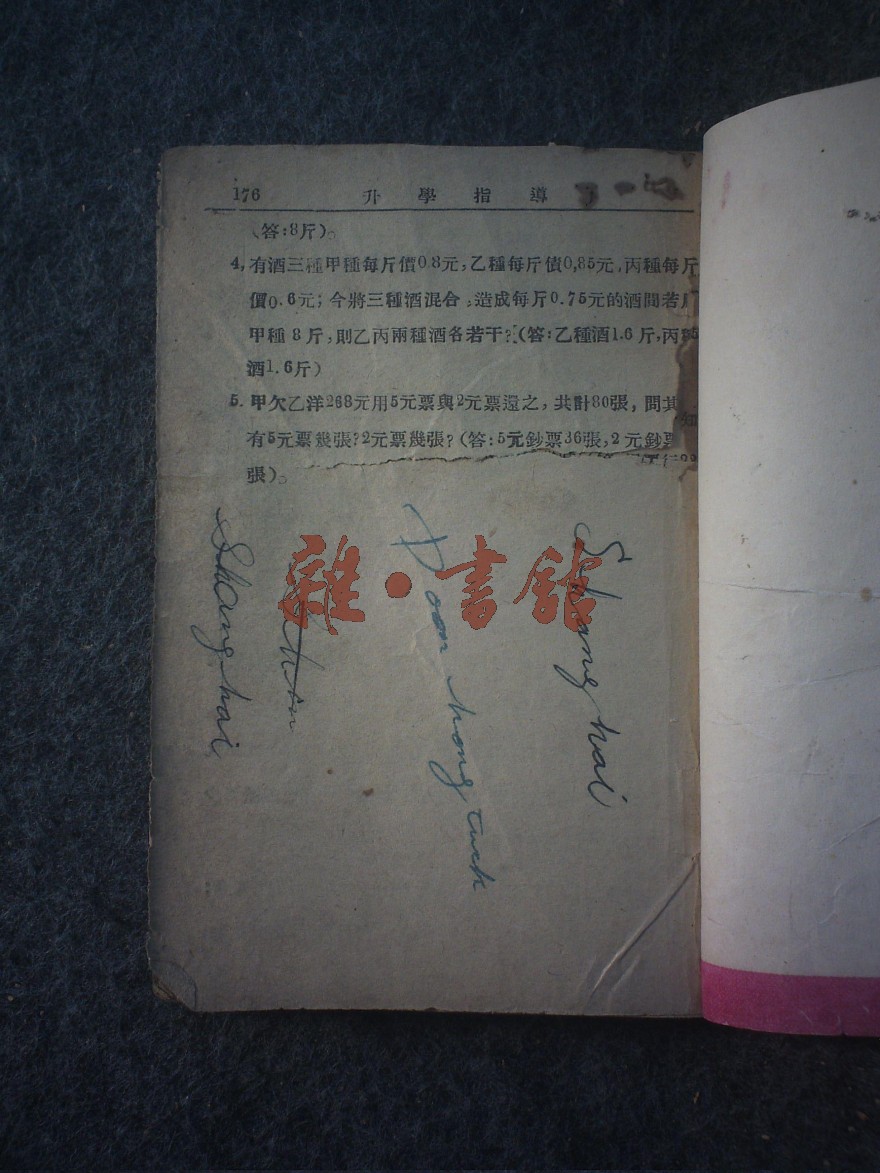 176 升學指導
(答:8斤)。
4,有酒三種甲種每斤價0.8元,乙種每斤價0,85元,丙種每斤
價0.6元;今將三種酒混合,造成每斤0.75元的酒問若用
甲種8斤,則乙丙兩種酒各若干?(答:乙種酒1.6斤,丙種
酒1.6斤)
5.甲欠乙洋268元用5元票與2元票還之,共計80張,問其
有5元票幾張?2元票幾張?(答:5元鈔票36張,2元鈔票
張)。
Shanghai
雜·書館
hong
Shanghai